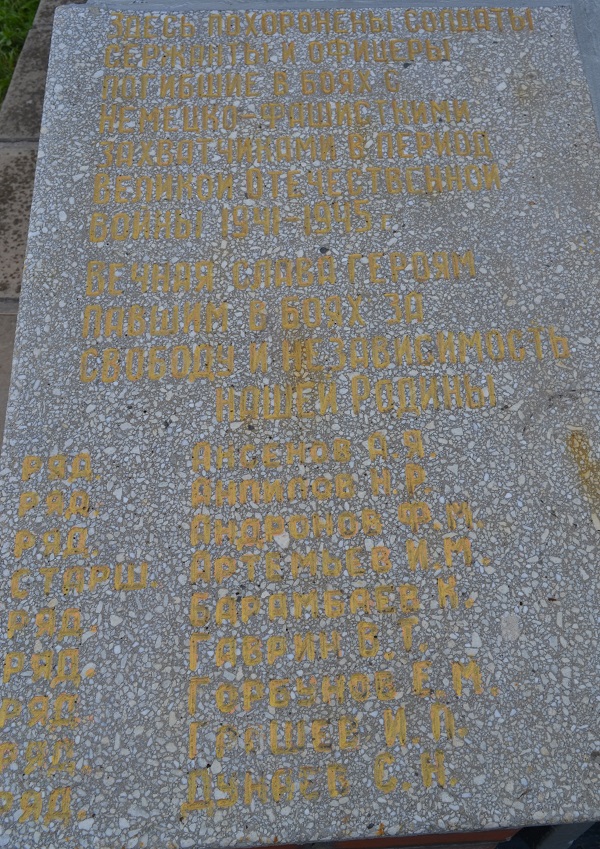 ЗДЕСЬ ПОХОРОНЕНЫ СОЛДАТЫ
СЕРЖАНТЫ И ОФИЦЕРЫ
ПОГИБШИЕ В БОЯХ С
НЕМЕЦКО-ФАШИСТКИМИ
ЗАХВАТЧИКАМИ В ПЕРИОД
ВЕЛИКОЙ ОТЕЧЕСТВЕННОЙ
ВОЙНЫ 1941-1945 г.
ВЕЧНАЯ СЛАВА ГЕРОЯМ
ПАВШИМ В БОЯХ ЗА
СВОБОДУ И НЕЗАВИСИМОСТЬ
НАШЕЙ РОДИНЫ
РЯД. АКСЕНОВ А.Я.
РЯД. АНПИЛОВ Н.Р.
РЯД. АНДРОНОВ Ф.М.
СТАРШ. АРТЕМЬЕВ И.М.
РЯД. БАРАМБАЕВ Н.
РЯД. ГАВРИН В.Т.
РЯД. ГОРБУНОВ Е.М.
РЯД. ГРАШЕВ И.П.
РЯД. ДУНАЕВ С.Н.